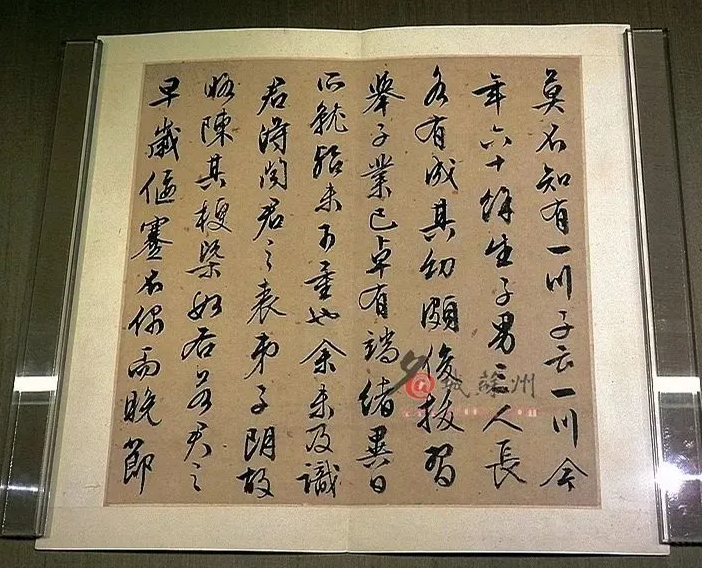 莫不知有一川子云一川今
年六十餘生子男三人長
各有成其幼頗俊拔習
舉子業已卓有端緒異日
所就殆未可量也余未及識
君得問君之表弟子朗故
略陳其梗槩如右若君之
早歲偃蹇不偶而晚節
名@城蘇州